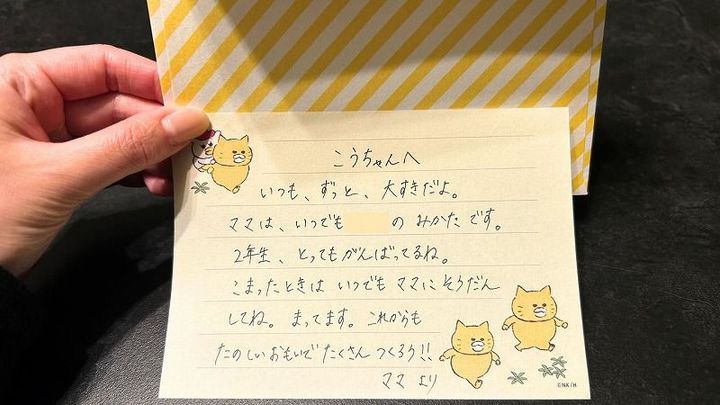 こうちゃんへ
いつも、ずっと、大すきだよ。
ママは、いつでも の みかたです。
2年生、とってもがんばってるね。
こまったときは いつでも ママに そうだん
してね。 まってます。 これからも
たのしいおもいで たくさん つくろう!!
ママ より
©NK/H